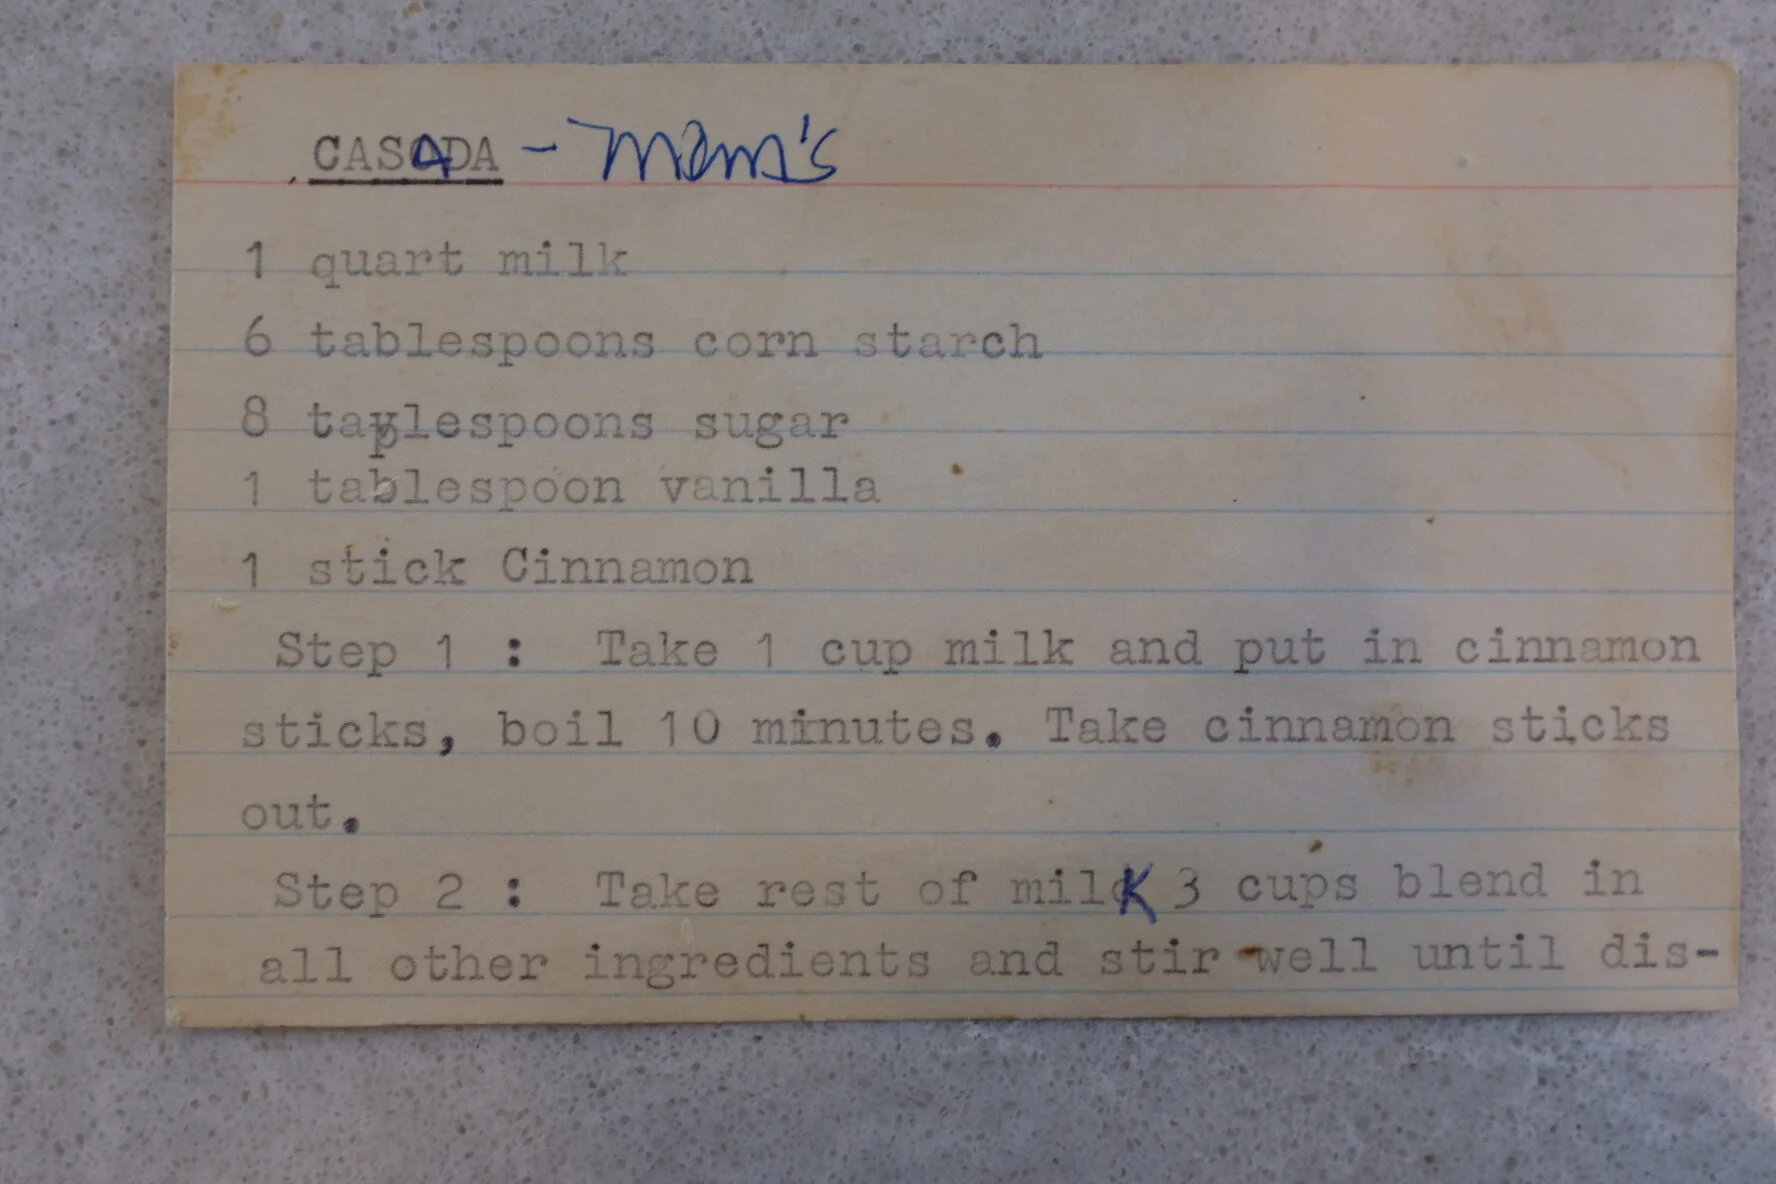 CASADA - Mom's
1 quart milk
6 tablespoons corn starch
8 tablespoons sugar
1 tablespoon vanilla
1 stick Cinnamon
Step 1 : Take 1 cup milk and put in cinnamon
sticks, boil 10 minutes. Take cinnamon sticks
out.
Step 2 : Take rest of milk 3 cups blend in
all other ingredients and stir well until dis-